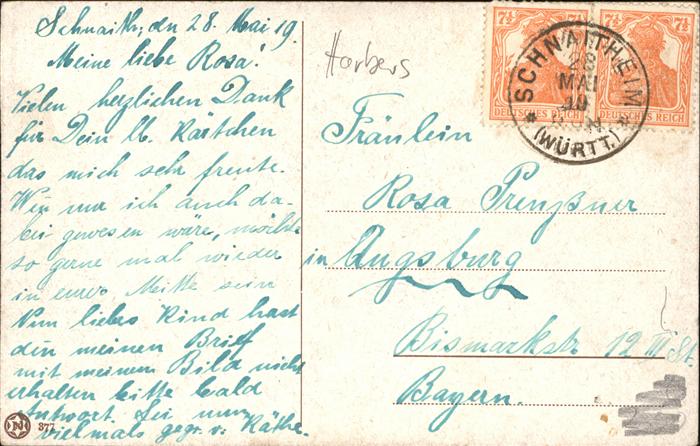 Schnaith, den 28. Mai 19.
Meine liebe Rosa!
Vielen herzlichen Dank
für Dein lb. Kärtchen
das mich sehr freute.
Wen nur ich auch da-
bei gewesen wäre, möchte
so gerne mal wieder
in eurer Mitte sein
Nun liebes Kind hast
den meinen Brief
mit meinem Bild nicht
erhalten bitte bald
Antwort. Sei nun
vielmals gegr. v. Käthe.
377
Harbers
7½ 7½
DEUTSCHES REICH DEUTSCHES REICH
SCHNAITHEIM
28
MAI
19
(WÜRTT.)
Fräulein
Rosa Preußner
in Augsburg
Bismarkstr. 12 III St.
Bayern.